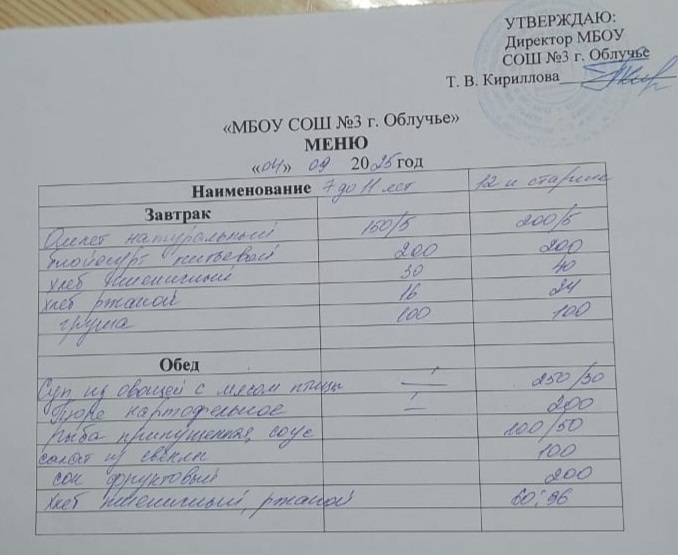 УТВЕРЖДАЮ:
Директор МБОУ
СОШ №3 г. Облучье
Т. В. Кириллова
«МБОУ СОШ №3 г. Облучье»
МЕНЮ
«04» 09 2025 год
Наименование 7 до 11 лет 12 и старше
Завтрак
Омлет натуральный 150/5 200/5
Биойогурт питьевой 200 200
Хлеб пшеничный 30 40
Хлеб ржаной 16 24
груша 100 100
Обед
Суп из овощей с мясом птицы — 250/30
Пюре картофельное — 200
Рыба припущенная, соус 100/50
салат из свёклы 100
сок фруктовый 200
Хлеб пшеничный, ржаной 60; 96